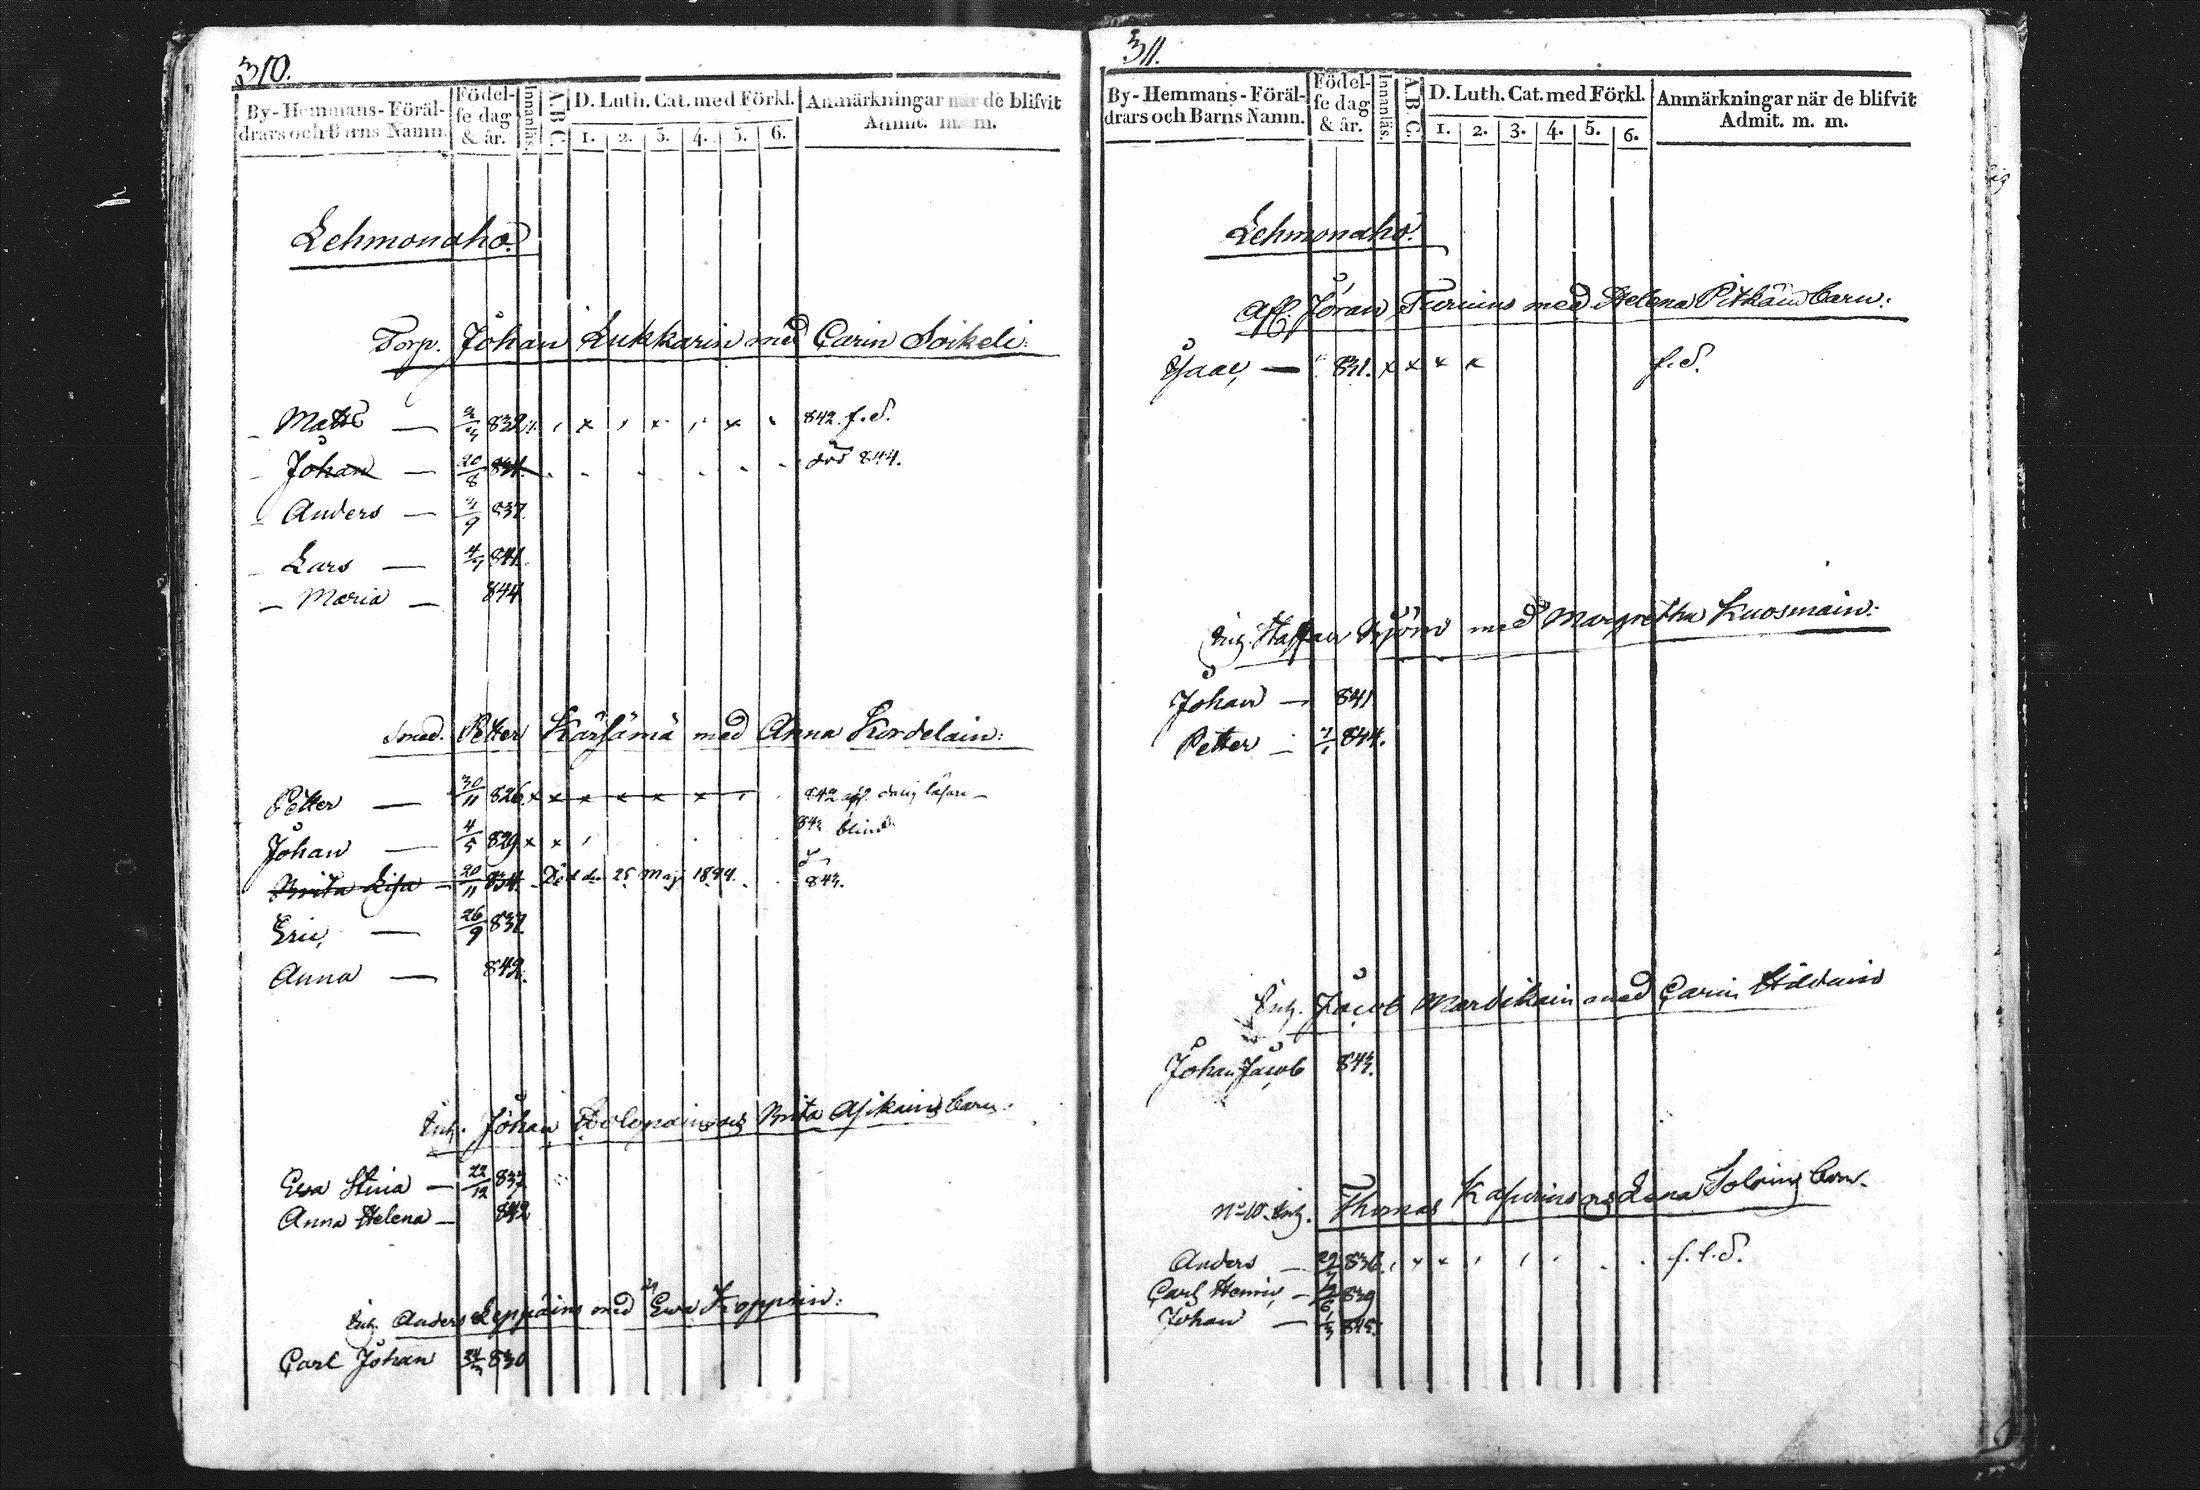 310.
By-Hemmans-Föräl-
drars och Barns Namn.
Födel-
se dag
& år.
Innanläs.
A.B.C.
D. Luth. Cat. med Förkl.
1. 2. 3. 4. 5. 6.
Anmärkningar när de blifvit
Admit. m. m.
Lehmonaho.
Torp. Johan Lukkarin med Carin Soikeli:
Matts — 832 x x x 842. f.d.
Johan — 20/8 834. död 844.
Anders — 9 837.
Lars — 4/7 841.
Maria — 844
Smed. Petter Kärsämä med Anna Kordelain:
Petter — 30/11 826. x x x x x x 842 läsare
Johan — 4/5 829 x x blind
Brita Lisa — 20/11 834. Död d. 25 Maji 1844. 843.
Eric — 26/9 837
Anna — 842.
Inh. Johan och Brita Asikains barn.
Ewa Stina — 22/12 837
Anna Helena — 842
Inh. Anders Leppäins med Ewa Koppoin:
Carl Johan 24/3 830
311.
By-Hemmans-Föräl-
drars och Barns Namn.
Födel-
se dag
& år.
Innanläs.
A.B.C.
D. Luth. Cat. med Förkl.
1. 2. 3. 4. 5. 6.
Anmärkningar när de blifvit
Admit. m. m.
Lehmonaho.
Afl. Jöran Turuins med Helena Pitkäin barn:
Isaac, — 831. x x x x f.d.
Inh. Staffan med Margretha Kuosmain:
Johan — 841
Petter — 7/1 844.
Inh. Jacob Mardikain med Carin
Johan Jacob 843.
No 10. Inh. Thomas och Lena barn.
Anders — 29 836. x x f.l.d.
Carl Henric — 6 839
Johan — 1/3 845.